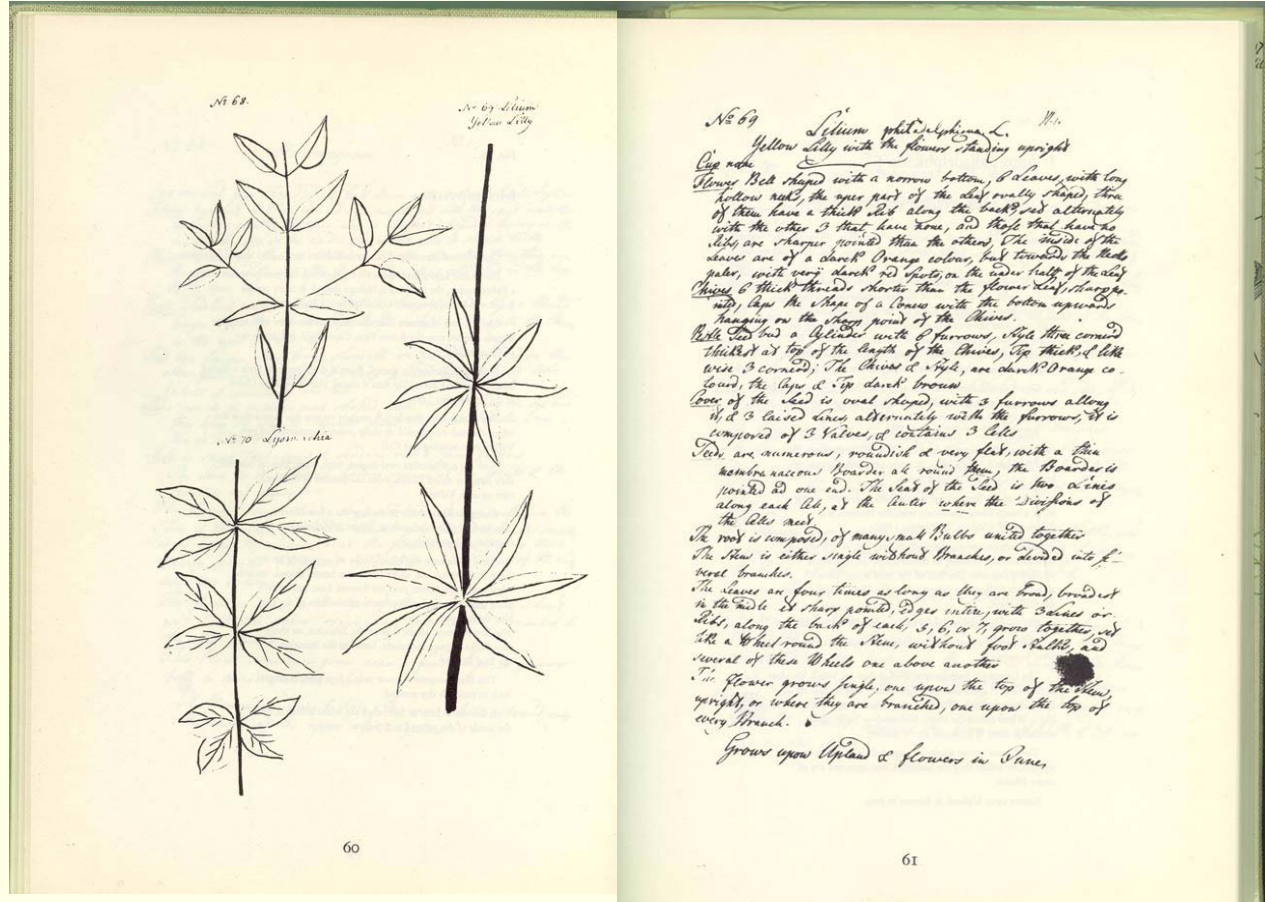 No 68.
No 69 Lilium
Yellow Lilly
No 70 Lysimachia
60
No 69 Lilium philadelphicum L.
Yellow Lilly with the flowers standing upright
Cup none
Flower Bell shaped with a norrow bottom, 6 Leaves, with long
hollow necks, the uper part of the Leaf ovally shaped, three
of them have a thick Rib along the back, set alternately
with the other 3 that have none, and those that have no
Ribs, are sharper pointed than the others, The inside of the
Leaves are of a darck Orange colour, but towards the
paler, with very darck red Spots, on the under half of the Leaf
Chives, 6 thick threads shorter than the flower Leaf, sharp po-
inted, Caps the Shape of a Conus with the bottom upwards
hanging on the sharp point of the Chives.
Pestle Seed bud a Cylinder with 6 furrows, Style three cornerd
thickest at top of the length of the Chives, Tip thick, & like
wise 3 cornerd; The Chives & Style, are darck Orange co-
lourd, the Caps & Tip darck broun
Cover of the Seed is oval shaped, with 3 furrows allong
it, & 3 raised Lines, alternately with the furrows, it is
composed of 3 Valves, & contains 3 Cells
Seeds are numerous, roundish & very flat, with a thin
membranaceous Boarder all round them, the Boarder is
pointed at one end. The Seat of the Seed is two Lines
along each Cell, at the Center where the Divisions of
the Cells meet
The root is composed, of many small Bulbs united together
The Stem is either single without Branches, or divided into se-
veral branches.
The Leaves are four times as long as they are broad, broadest
in the midle & sharp pointed, Edges intire, with 3 Lines or
Ribs, along the back of each, 5, 6, or 7, grow together, set
like a Wheel round the Stem, without foot Stalks, and
several of these Wheels one above another
The flower grows single, one upon the top of the Stem,
upright, or where they are branched, one upon the top of
every Branch.
Grows upon Upland & flowers in June,
61